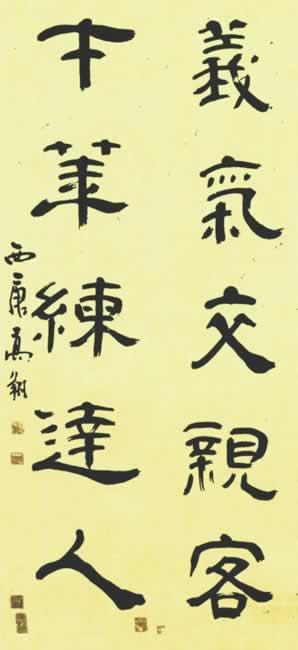 義氣交親客
才華練達人
西唐高翔